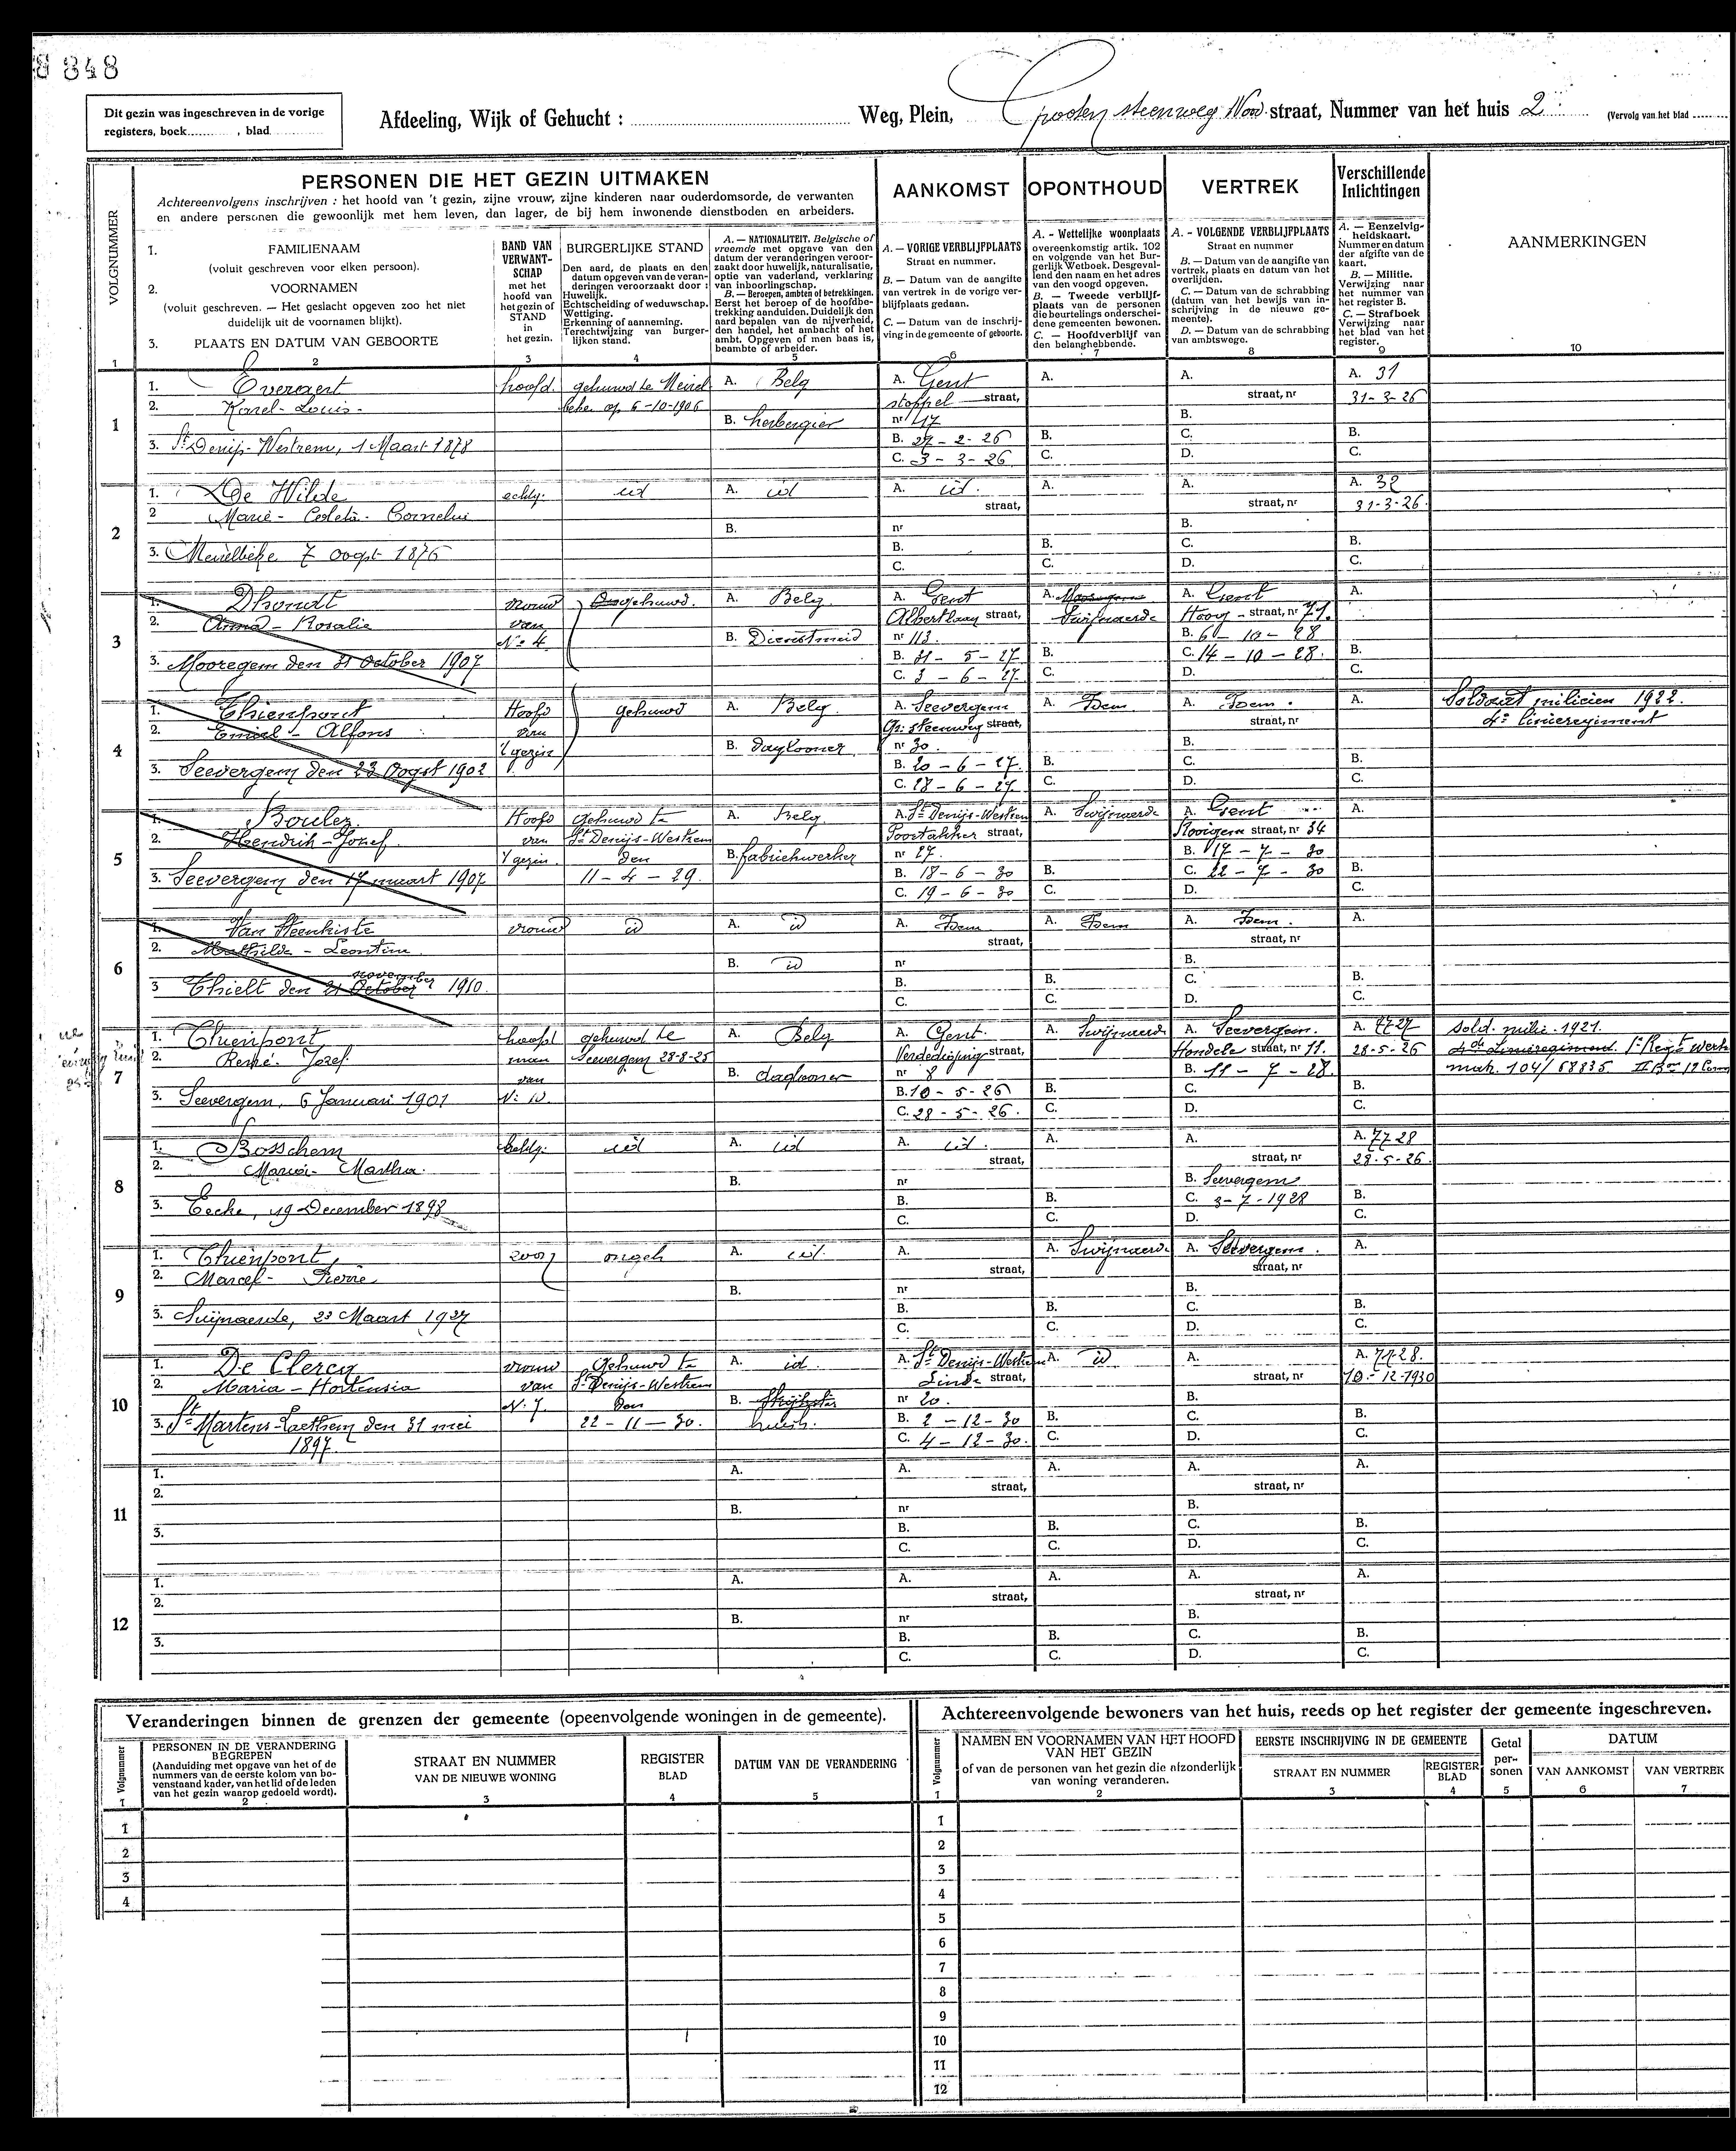 8 848
Dit gezin was ingeschreven in de vorige
registers, boek , blad
Afdeeling, Wijk of Gehucht : Weg, Plein, Grooten steenweg Noord straat, Nummer van het huis 2 (Vervolg van het blad
VOLGNUMMER
PERSONEN DIE HET GEZIN UITMAKEN
Achtereenvolgens inschrijven : het hoofd van 't gezin, zijne vrouw, zijne kinderen naar ouderdomsorde, de verwanten
en andere personen die gewoonlijk met hem leven, dan lager, de bij hem inwonende dienstboden en arbeiders.
AANKOMST
OPONTHOUD
VERTREK
Verschillende
Inlichtingen
AANMERKINGEN
1. FAMILIENAAM
(voluit geschreven voor elken persoon).
2. VOORNAMEN
(voluit geschreven. — Het geslacht opgeven zoo het niet
duidelijk uit de voornamen blijkt).
3. PLAATS EN DATUM VAN GEBOORTE
BAND VAN
VERWANT-
SCHAP
met het
hoofd van
het gezin of
STAND
in
het gezin.
BURGERLIJKE STAND
Den aard, de plaats en den
datum opgeven van de veran-
deringen veroorzaakt door :
Huwelijk.
Echtscheiding of weduwschap.
Wettiging.
Erkenning of aanneming.
Terechtwijzing van burger-
lijken stand.
A. — NATIONALITEIT. Belgische of
vreemde met opgave van den
datum der veranderingen veroor-
zaakt door huwelijk, naturalisatie,
optie van vaderland, verklaring
van inboorlingschap.
B. — Beroepen, ambten of betrekkingen.
Eerst het beroep of de hoofdbe-
trekking aanduiden. Duidelijk den
aard bepalen van de nijverheid,
den handel, het ambacht of het
ambt. Opgeven of men baas is,
beambte of arbeider.
A. — VORIGE VERBLIJFPLAATS
Straat en nummer.
B. — Datum van de aangifte
van vertrek in de vorige ver-
blijfplaats gedaan.
C. — Datum van de inschrij-
ving in de gemeente of geboorte.
A. - Wettelijke woonplaats
overeenkomstig artik. 102
en volgende van het Bur-
gerlijk Wetboek. Desgeval-
lend den naam en het adres
van den voogd opgeven.
B. — Tweede verblijf-
plaats van de personen
die beurtelings onderschei-
dene gemeenten bewonen.
C. — Hoofdverblijf van
den belanghebbende.
A. - VOLGENDE VERBLIJFPLAATS
Straat en nummer
B. — Datum van de aangifte van
vertrek, plaats en datum van het
overlijden.
C. — Datum van de schrabbing
(datum van het bewijs van in-
schrijving in de nieuwe ge-
meente).
D. — Datum van de schrabbing
van ambtswege.
A. — Eenzelvig-
heidskaart.
Nummer en datum
der afgifte van de
kaart.
B. — Militie.
Verwijzing naar
het nummer van
het register B.
C. — Strafboek
Verwijzing naar
het blad van het
register.
1 2 3 4 5 6 7 8 9 10
1
1. Everaert hoofd. gehuwd te Meirel A. Belg A. Gent A. A. A. 31
2. Karel-Louis- beke op 6-10-1906 stoppel straat, straat, nr 31-3-26
B. herbergier nr 47 B.
3. St Denijs-Westrem, 1 Maart 1878 B. 27-2-26 B. C. B.
C. 3-3-26 C. D. C.
2
1. De Wilde echtg. id A. id A. id. A. A. A. 32
2 Marie- Coleta- Cornelia straat, straat, nr 31-3-26.
B. nr B.
3. Meirelbeke 7 oogst 1876 B. B. C. B.
C. C. D. C.
3
1. Dhondt vrouw Ongehuwd. A. Belg. A. Gent A. Mooregem A. Gent A.
2. Anna-Rosalie van Albertlaan straat, Swijnaerde Hoog - straat, nr 71.
No 4 B. Dienstmeid nr 113. B. 6-10-28
3. Mooregem den 31 October 1907 B. 31-5-27 B. C. 14-10-28. B.
C. 3-6-27 C. D. C.
4
1. Thienpont Hoofd gehuwd A. Belg. A. Seevergem A. Idem A. Idem. A. Soldaat milicien 1922.
2. Emiel-Alfons van Gr. steenweg straat, straat, nr 4e linieregiment
't gezin B. daglooner nr 30. B.
3. Seevergem den 23 Oogst 1902 B. 20-6-27. B. C. B.
C. 28-6-27. C. D. C.
5
1. Boulez Hoofd Gehuwd te A. Belg. A. St Denijs-Westrem A. Swijnaerde A. Gent A.
2. Hendrik-Jozef van St Denijs-Westrem Poortakker straat, Rooigem straat, nr 34
't gezin. den B. fabriekwerker nr 27. B. 17-7-30
3. Seevergem den 17 maart 1907 11-4-29. B. 18-6-30 B. C. 22-7-30 B.
C. 19-6-30 C. D. C.
6
1. Van Steenkiste vrouw id A. id A. Idem A. Idem A. Idem. A.
2. Mathilde-Leontina straat, straat, nr
november B. id nr B.
3 Thielt den 21 October 1910. B. B. C. B.
C. C. D. C.
7
1. Thienpont hoofd gehuwd te A. Belg A. Gent. A. Swijnaerde A. Seevergem. A. 7727 Sold. milic. 1921.
2. René-Jozef. man Seevergem 28-8-25 Verdediging straat, Hondele straat, nr 11. 28-5-26 4de Linieregiment. 1e Regt Werk
van B. daglooner nr 8 B. 11-7-28. mat. 104/58835 II Bon 12 Com
3. Seevergem, 6 Januari 1901 N: 10. B. 10-5-26 B. C. B.
C. 28-5-26. C. D. C.
8
1. Bosschem echtg. id A. id A. id. A. A. A. 7728
2. Maria- Martha. straat, straat, nr 28-5-26.
B. nr B. Seevergem
3. Eecke, 19 December 1898 B. B. C. 3-7-1928 B.
C. C. D. C.
9
1. Thienpont, zoon ongeh A. id. A. A. Swijnaerde A. Seevergem. A.
2. Marcel- Pierre straat, straat, nr
B. nr B.
3. Swijnaerde, 23 Maart 1927 B. B. C. B.
C. C. D. C.
10
1. De Clercq vrouw Gehuwd te A. id. A. St Denijs-Westrem A. id A. A. 7728.
2. Maria-Hortensia van St Denijs-Westrem Linde straat, straat, nr 10-12-1930
N. 7. den B. Strijkster nr 20. B.
3. St Martens-Laethem den 31 mei 22-11-30. huish. B. 2-12-30 B. C. B.
1897. C. 4-12-30. C. D. C.
11
1. A. A. A. A. A.
2. straat, straat, nr
B. nr B.
3. B. B. C. B.
C. C. D. C.
12
1. A. A. A. A. A.
2. straat, straat, nr
B. nr B.
3. B. B. C. B.
C. C. D. C.
Veranderingen binnen de grenzen der gemeente (opeenvolgende woningen in de gemeente).
Volgnummer
PERSONEN IN DE VERANDERING
BEGREPEN
(Aanduiding met opgave van het of de
nummers van de eerste kolom van bo-
venstaand kader, van het lid of de leden
van het gezin waarop gedoeld wordt).
STRAAT EN NUMMER
VAN DE NIEUWE WONING
REGISTER
BLAD
DATUM VAN DE VERANDERING
1 2 3 4 5
1
2
3
4
Achtereenvolgende bewoners van het huis, reeds op het register der gemeente ingeschreven.
Volgnummer
NAMEN EN VOORNAMEN VAN HET HOOFD
VAN HET GEZIN
of van de personen van het gezin die afzonderlijk
van woning veranderen.
EERSTE INSCHRIJVING IN DE GEMEENTE
STRAAT EN NUMMER
REGISTER
BLAD
Getal
per-
sonen
DATUM
VAN AANKOMST
VAN VERTREK
1 2 3 4 5 6 7
1
2
3
4
5
6
7
8
9
10
11
12